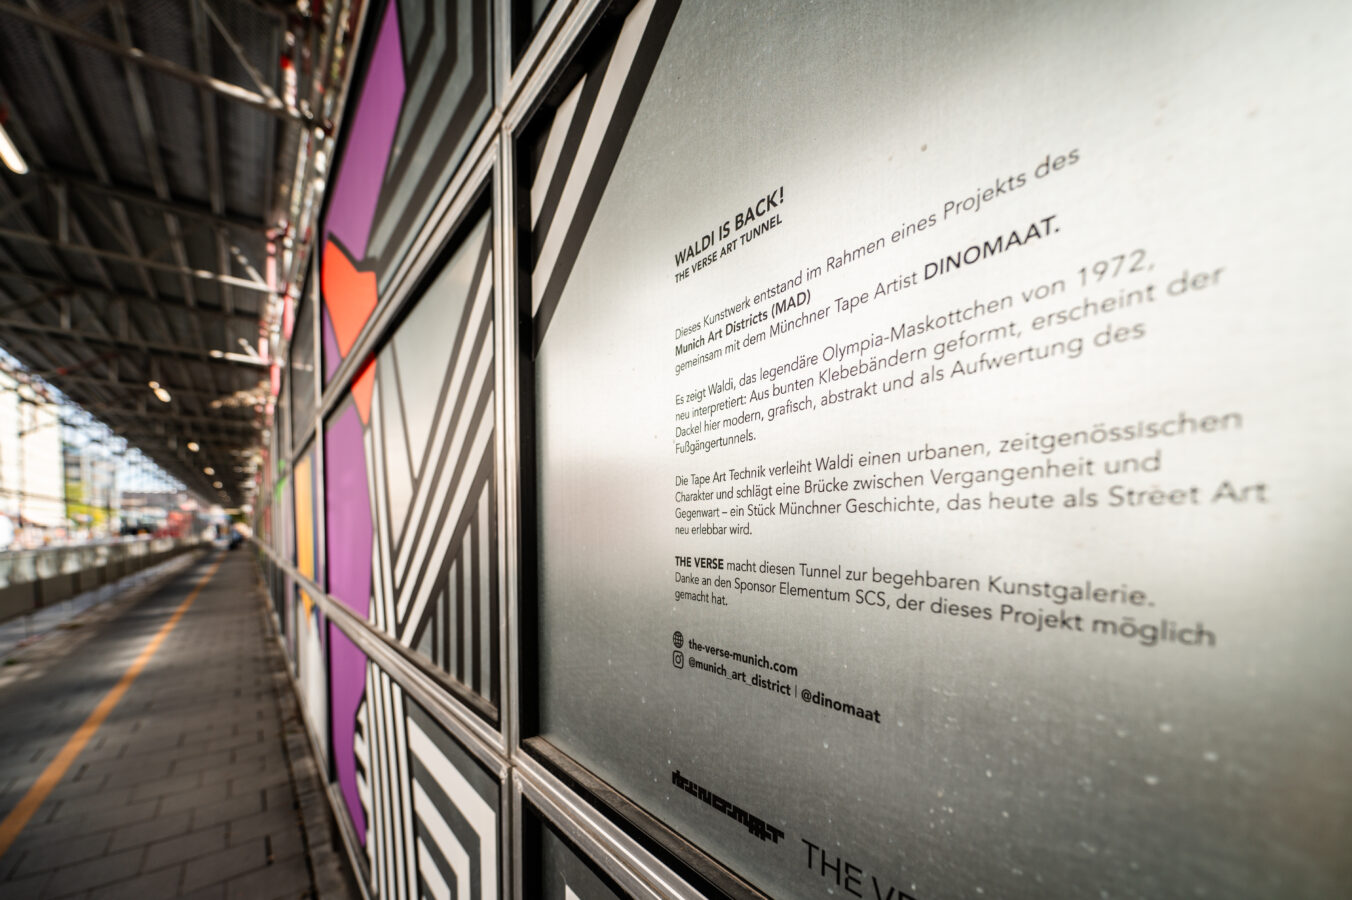 WALDI IS BACK!
THE VERSE ART TUNNEL
Dieses Kunstwerk entstand im Rahmen eines Projekts des
Munich Art Districts (MAD)
gemeinsam mit dem Münchner Tape Artist DINOMAAT.
Es zeigt Waldi, das legendäre Olympia-Maskottchen von 1972,
neu interpretiert: Aus bunten Klebebändern geformt, erscheint der
Dackel hier modern, grafisch, abstrakt und als Aufwertung des
Fußgängertunnels.
Die Tape Art Technik verleiht Waldi einen urbanen, zeitgenössischen
Charakter und schlägt eine Brücke zwischen Vergangenheit und
Gegenwart – ein Stück Münchner Geschichte, das heute als Street Art
neu erlebbar wird.
THE VERSE macht diesen Tunnel zur begehbaren Kunstgalerie.
Danke an den Sponsor Elementum SCS, der dieses Projekt möglich
gemacht hat.
the-verse-munich.com
@munich_art_district | @dinomaat
THE